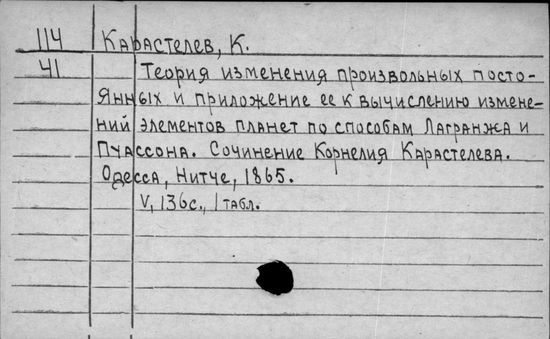 114 Карастелев, К.
41 Теория изменения произвольных посто-
янных и приложение ее к вычислению измене-
ний элементов планет по способам Лагранжа и
Пуассона. Сочинение Корнелия Карастелева.
Одесса, Нитче, 1865.
V, 136с., 1 табл.